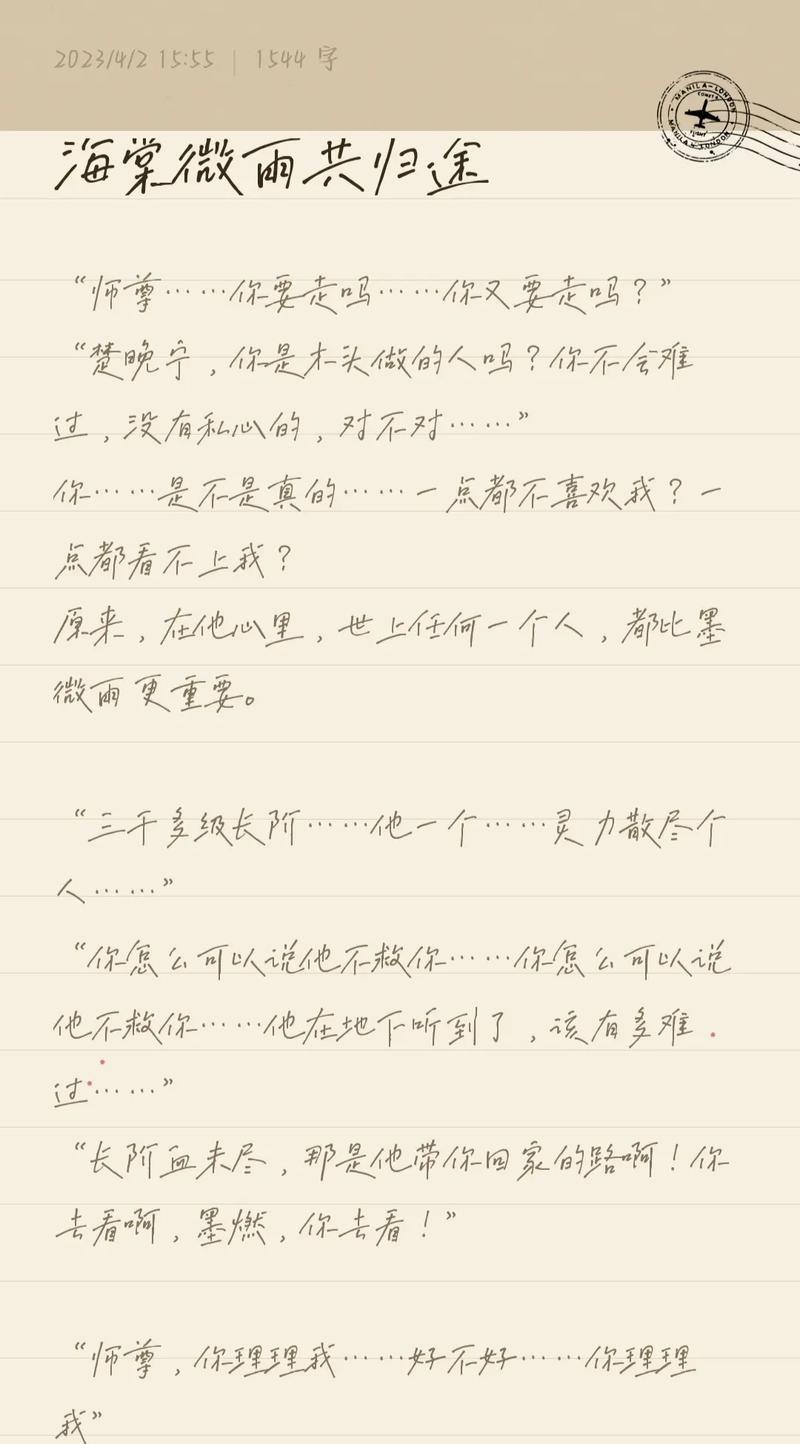 2023/4/2 15:55 | 1544 字
MANILA-LONDON
MANILA-LONDON
海棠微雨共归途
“师尊……你要走吗……你又要走吗？”
“楚晚宁，你是木头做的人吗？你不会难
过，没有私心的，对不对……”
你……是不是真的……一点都不喜欢我？一
点都看不上我？
原来，在他心里，世上任何一个人，都比墨
微雨更重要。
“三千多级长阶……他一个……灵力散尽个
人……”
“你怎么可以说他不救你……你怎么可以说
他不救你……他在地下听到了，该有多难
过……”
“长阶血未尽，那是他带你回家的路啊！你
去看啊，墨燃，你去看！”
“师尊，你理理我……好不好……你理理
我”